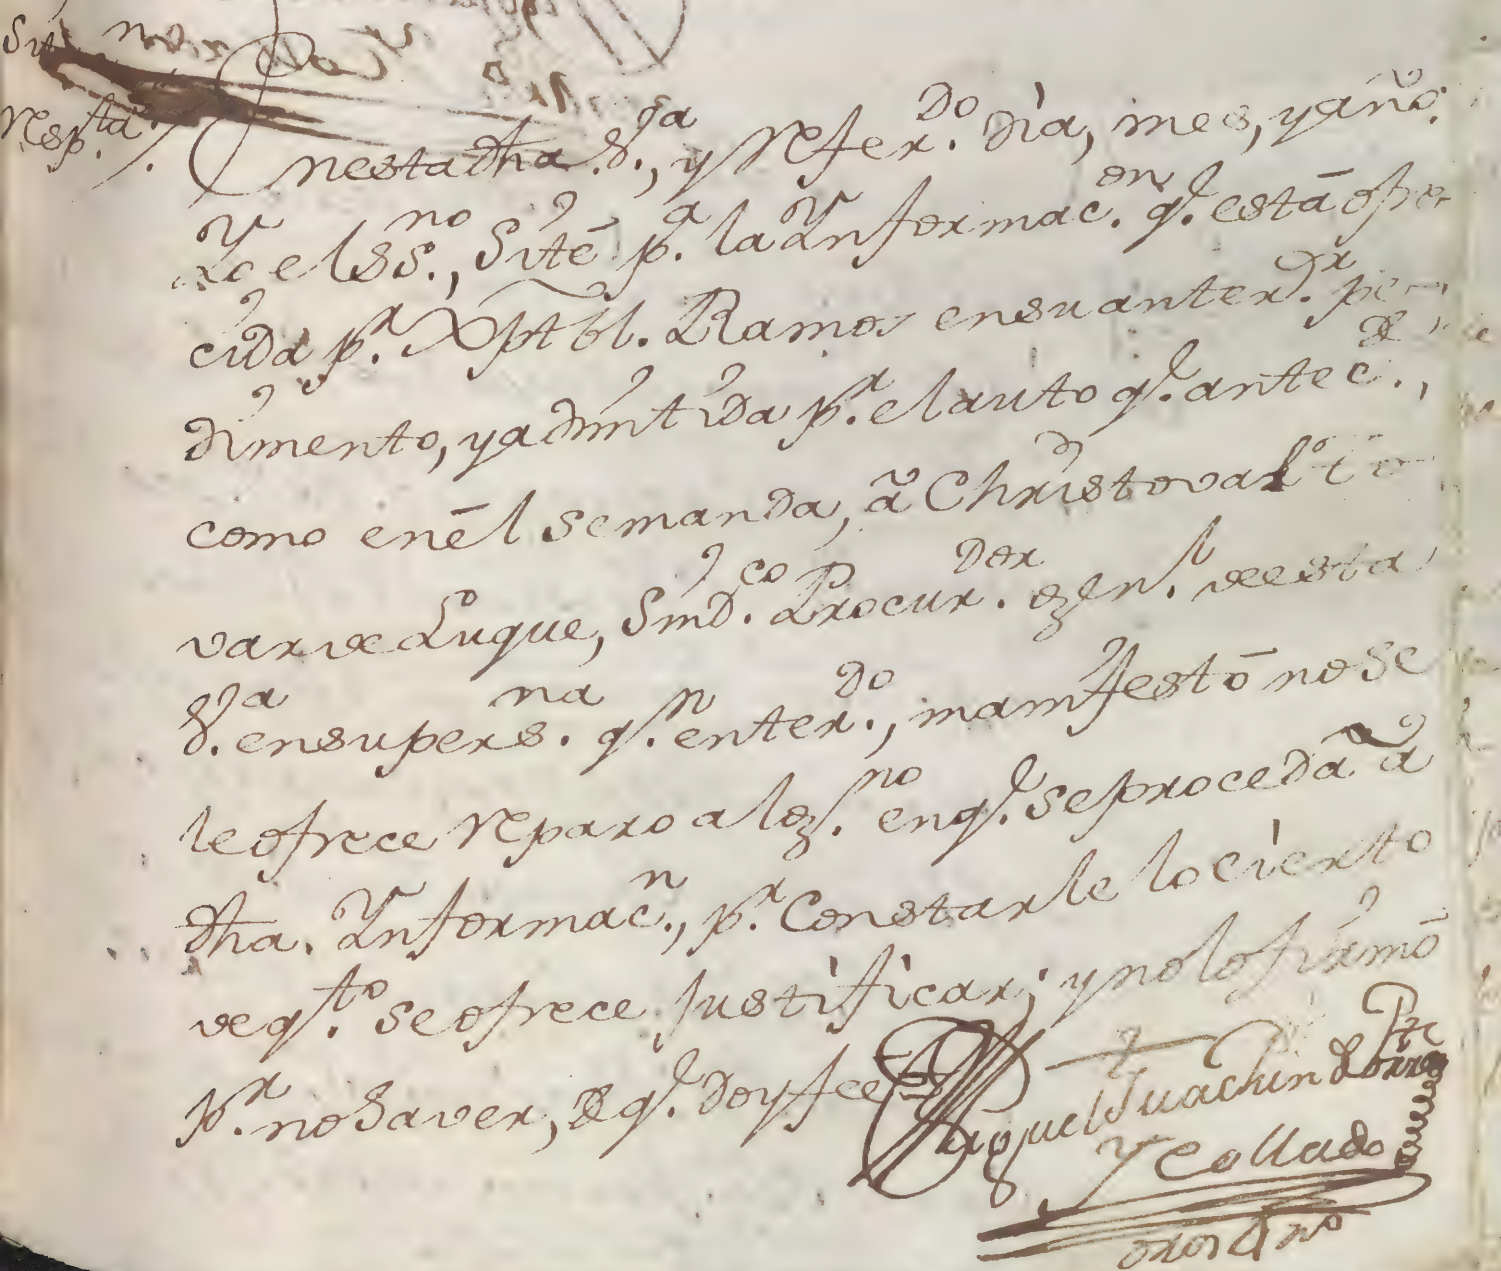 Sit
resp.ta
En esta dha V.a, y refer.do dia, mes, y año.
Yo el SS.no, Sité p.a la Ynformac.on q.e está ofre-
cida p.r Xptbl. Ramos en su anter.r pe-
dimento, y admitida p.r el auto q.e antec.de,
como en él se manda, á Christoval To
var de Luque, Sindico Procur.dor gen.l de esta
V.a en su pers.na q.n enter.do, manifestó no se
le ofrece reparo alg.no en q.e se proceda á
dha. Ynformac.n, p.r Constarle lo cierto
de q.to se ofrece Justificar; y no lo firmó
p.r no Saver, de q.e Doy fee=
Miguel Juachin de Porras
Y Collado